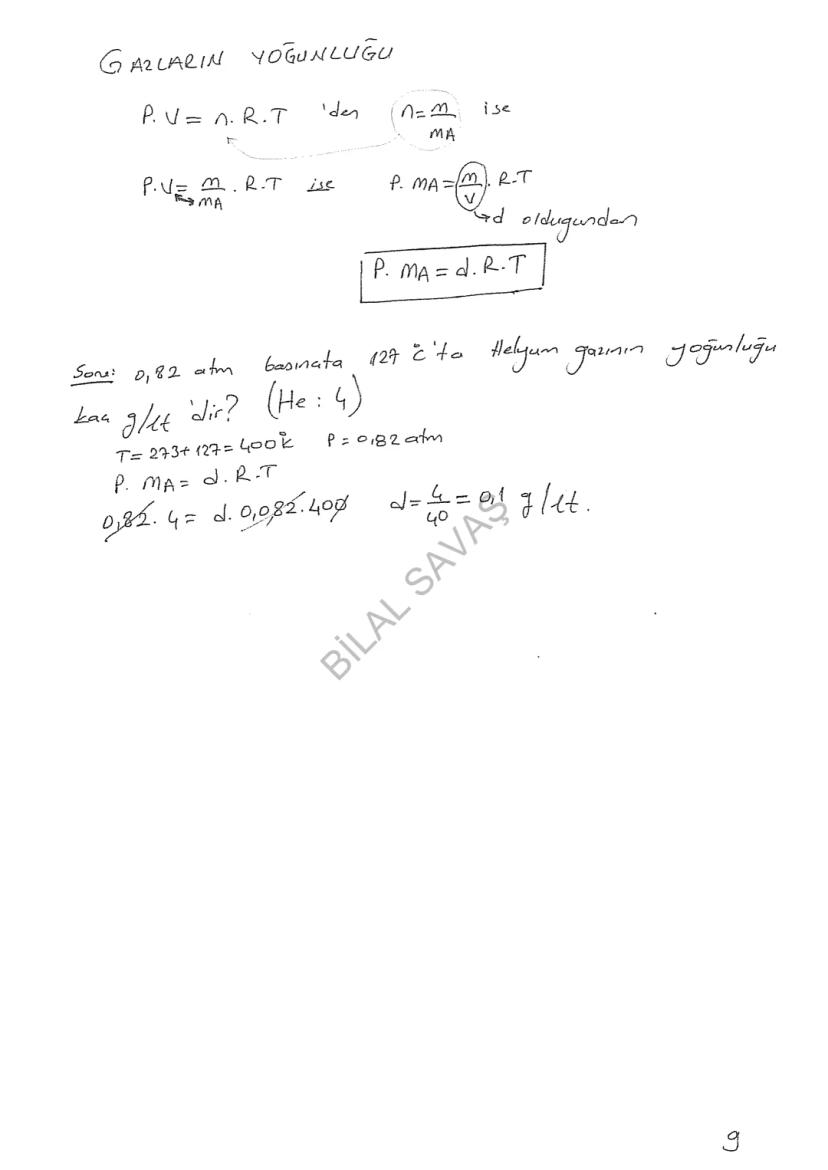 GAZLARIN YOĞUNLUĞU
P. V = n. R. T 'den n = m/MA ise
P. V = m/MA . R. T ise P. MA = m/V . R. T
d oldugundan
P. MA = d. R. T
Soru: 0,82 atm basınçta 127 °C'ta Helyum gazının yoğunluğu
kaç g/lt 'dir? (He : 4)
T = 273 + 127 = 400 °K P = 0,82 atm
P. MA = d. R. T
0,82. 4 = d. 0,082. 400 d = 4/40 = 0,1 g/lt.
BİLAL SAVAŞ
9